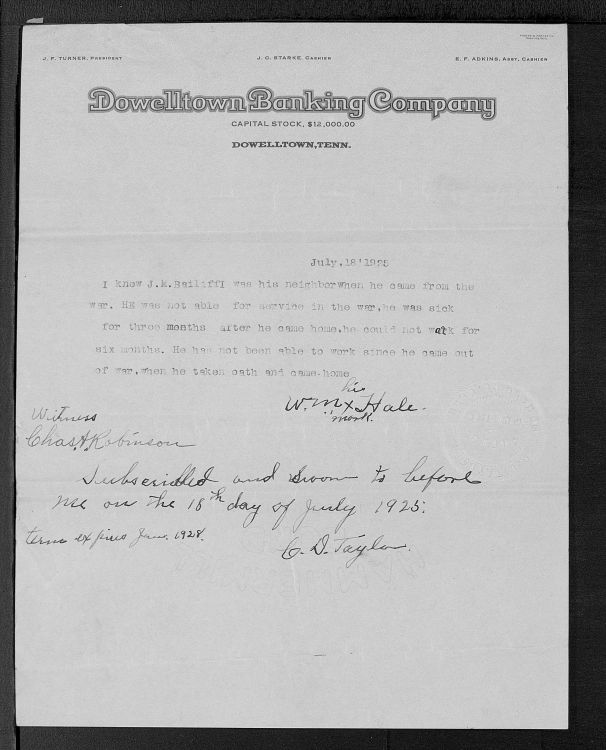 J. F. TURNER, PRESIDENT J. C. STARKE, CASHIER E. F. ADKINS, ASST. CASHIER
Dowelltown Banking Company
CAPITAL STOCK, $12,000.00
DOWELLTOWN, TENN.
July.18'1925
I knew J.M.BailiffI was his neighborwhen he came from the
war. HE was not able for service in the war,he was sick
for three months after he came home,he could not walk for
six months. He has not been able to work since he came out
of war,when he taken oath and came home
his
W. M. x Hale.
mark.
Witness
Chas. A. Robinson
Subscribed and sworn to before
me on the 18th day of July 1925.
term expires Jan. 1928.
C. D. Taylor.